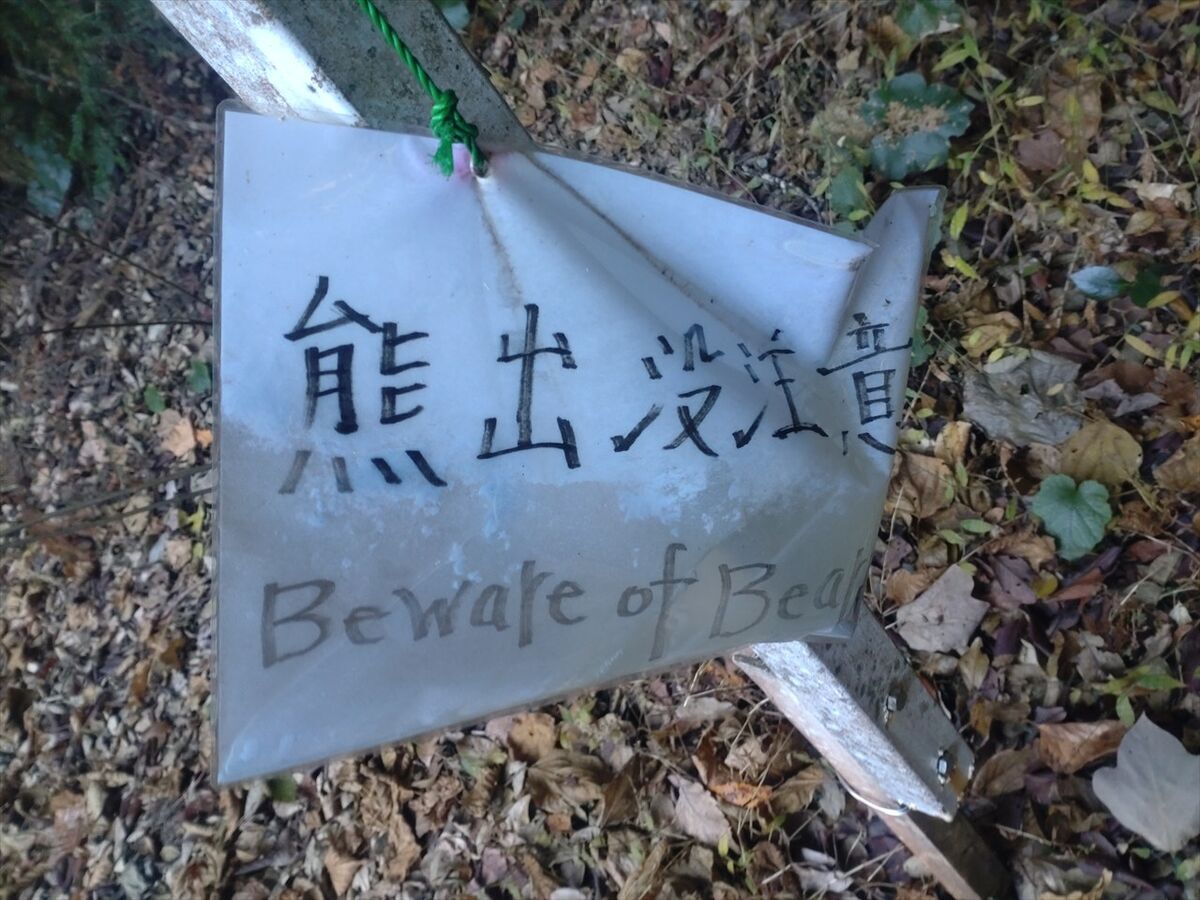 熊出没注意
Beware of Bear